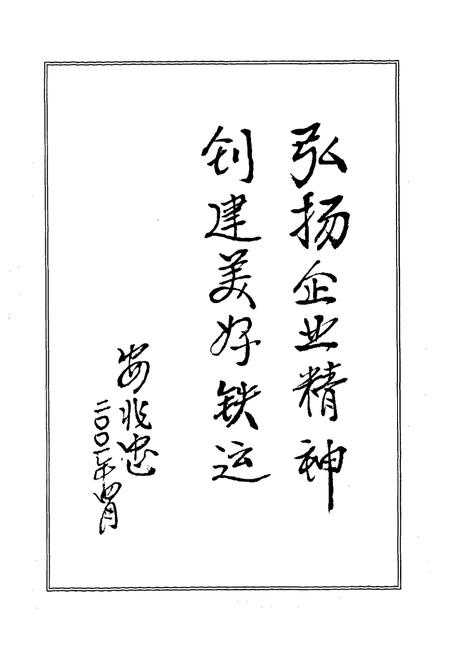 弘扬企业精神
创建美好铁运
安兆忠
二〇〇一年四月